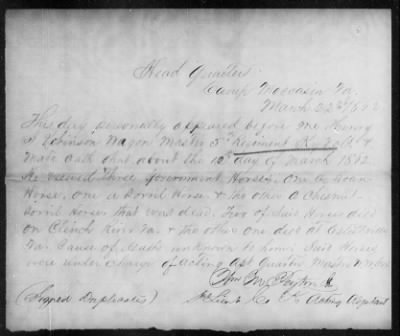 Head Quarters
Camp Moccasin Va.
March 22nd 1862
This day personally appeared before me Henry
Robinson Wagon Master 5th Regiment &
Make oath that about the day of March 1862
he viewed three government Horses, One a Roan
Horse, one a Sorrel Horse & the other a Chesnut
Sorrel Horse that was dead. Two of Said Horses died
on Clinch River Va. & the other one died at
Va. Cause of death unknown to him. Said Horses
were under charge of Acting Ast Quarter Master
Wm M Peyton
(Signed Duplicates) Lieut Co Acting Adjutant